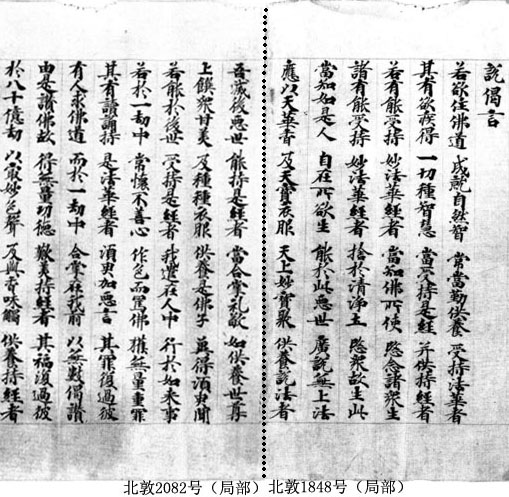 說偈言
若欲住佛道　成就自然智　常當勤供養　受持法華者
其有欲疾得　一切種智慧　當受持是經　并供持經者
若有能受持　妙法華經者　當知佛所使　愍念諸衆生
諸有能受持　妙法華經者　捨於清淨土　愍衆故生此
當知如是人　自在所欲生　能於此惡世　廣說無上法
應以天華香　及天寶衣服　天上妙寶聚　供養說法者
吾滅後惡世　能持是經者　當合掌礼敬　如供養世尊
上饌衆甘美　及種種衣服　供養是佛子　冀得須臾聞
若能於後世　受持是經者　我遣在人中　行於如來事
若於一劫中　常懷不善心　作色而罵佛　獲無量重罪
其有讀誦持　是法華經者　須臾加惡言　其罪復過彼
有人求佛道　而於一劫中　合掌在我前　以無數偈讚
由是讚佛故　得無量功德　歎美持經者　其福復過彼
於八十億劫　以最妙色聲　及與香味觸　供養持經者
北敦2082号（局部）北敦1848号（局部）